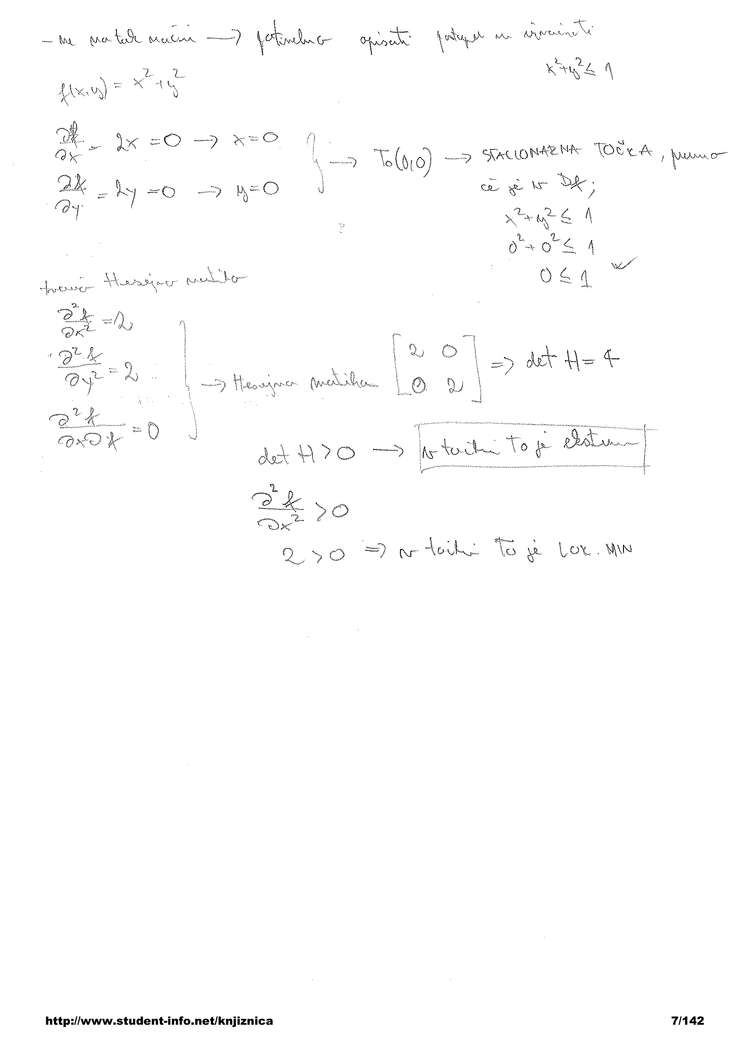 - ne na tak način → potrebno opisati postopek in izračunati
f(x,y) = x² + y²
x² + y² ≤ 1
∂f/∂x = 2x = 0 → x = 0
∂f/∂y = 2y = 0 → y = 0
} → T₀(0,0) → STACIONARNA TOČKA,
če je v Df;
x² + y² ≤ 1
0² + 0² ≤ 1
0 ≤ 1 ✓
Hesejno matriko
∂²f/∂x² = 2
∂²f/∂y² = 2
∂²f/∂x∂y = 0
} → Hesejna matrika [2 0; 0 2] => det H = 4
det H > 0 → v točki T₀ je ekstrem
∂²f/∂x² > 0
2 > 0 => v točki T₀ je LOK. MIN
http://www.student-info.net/knjiznica
7/142